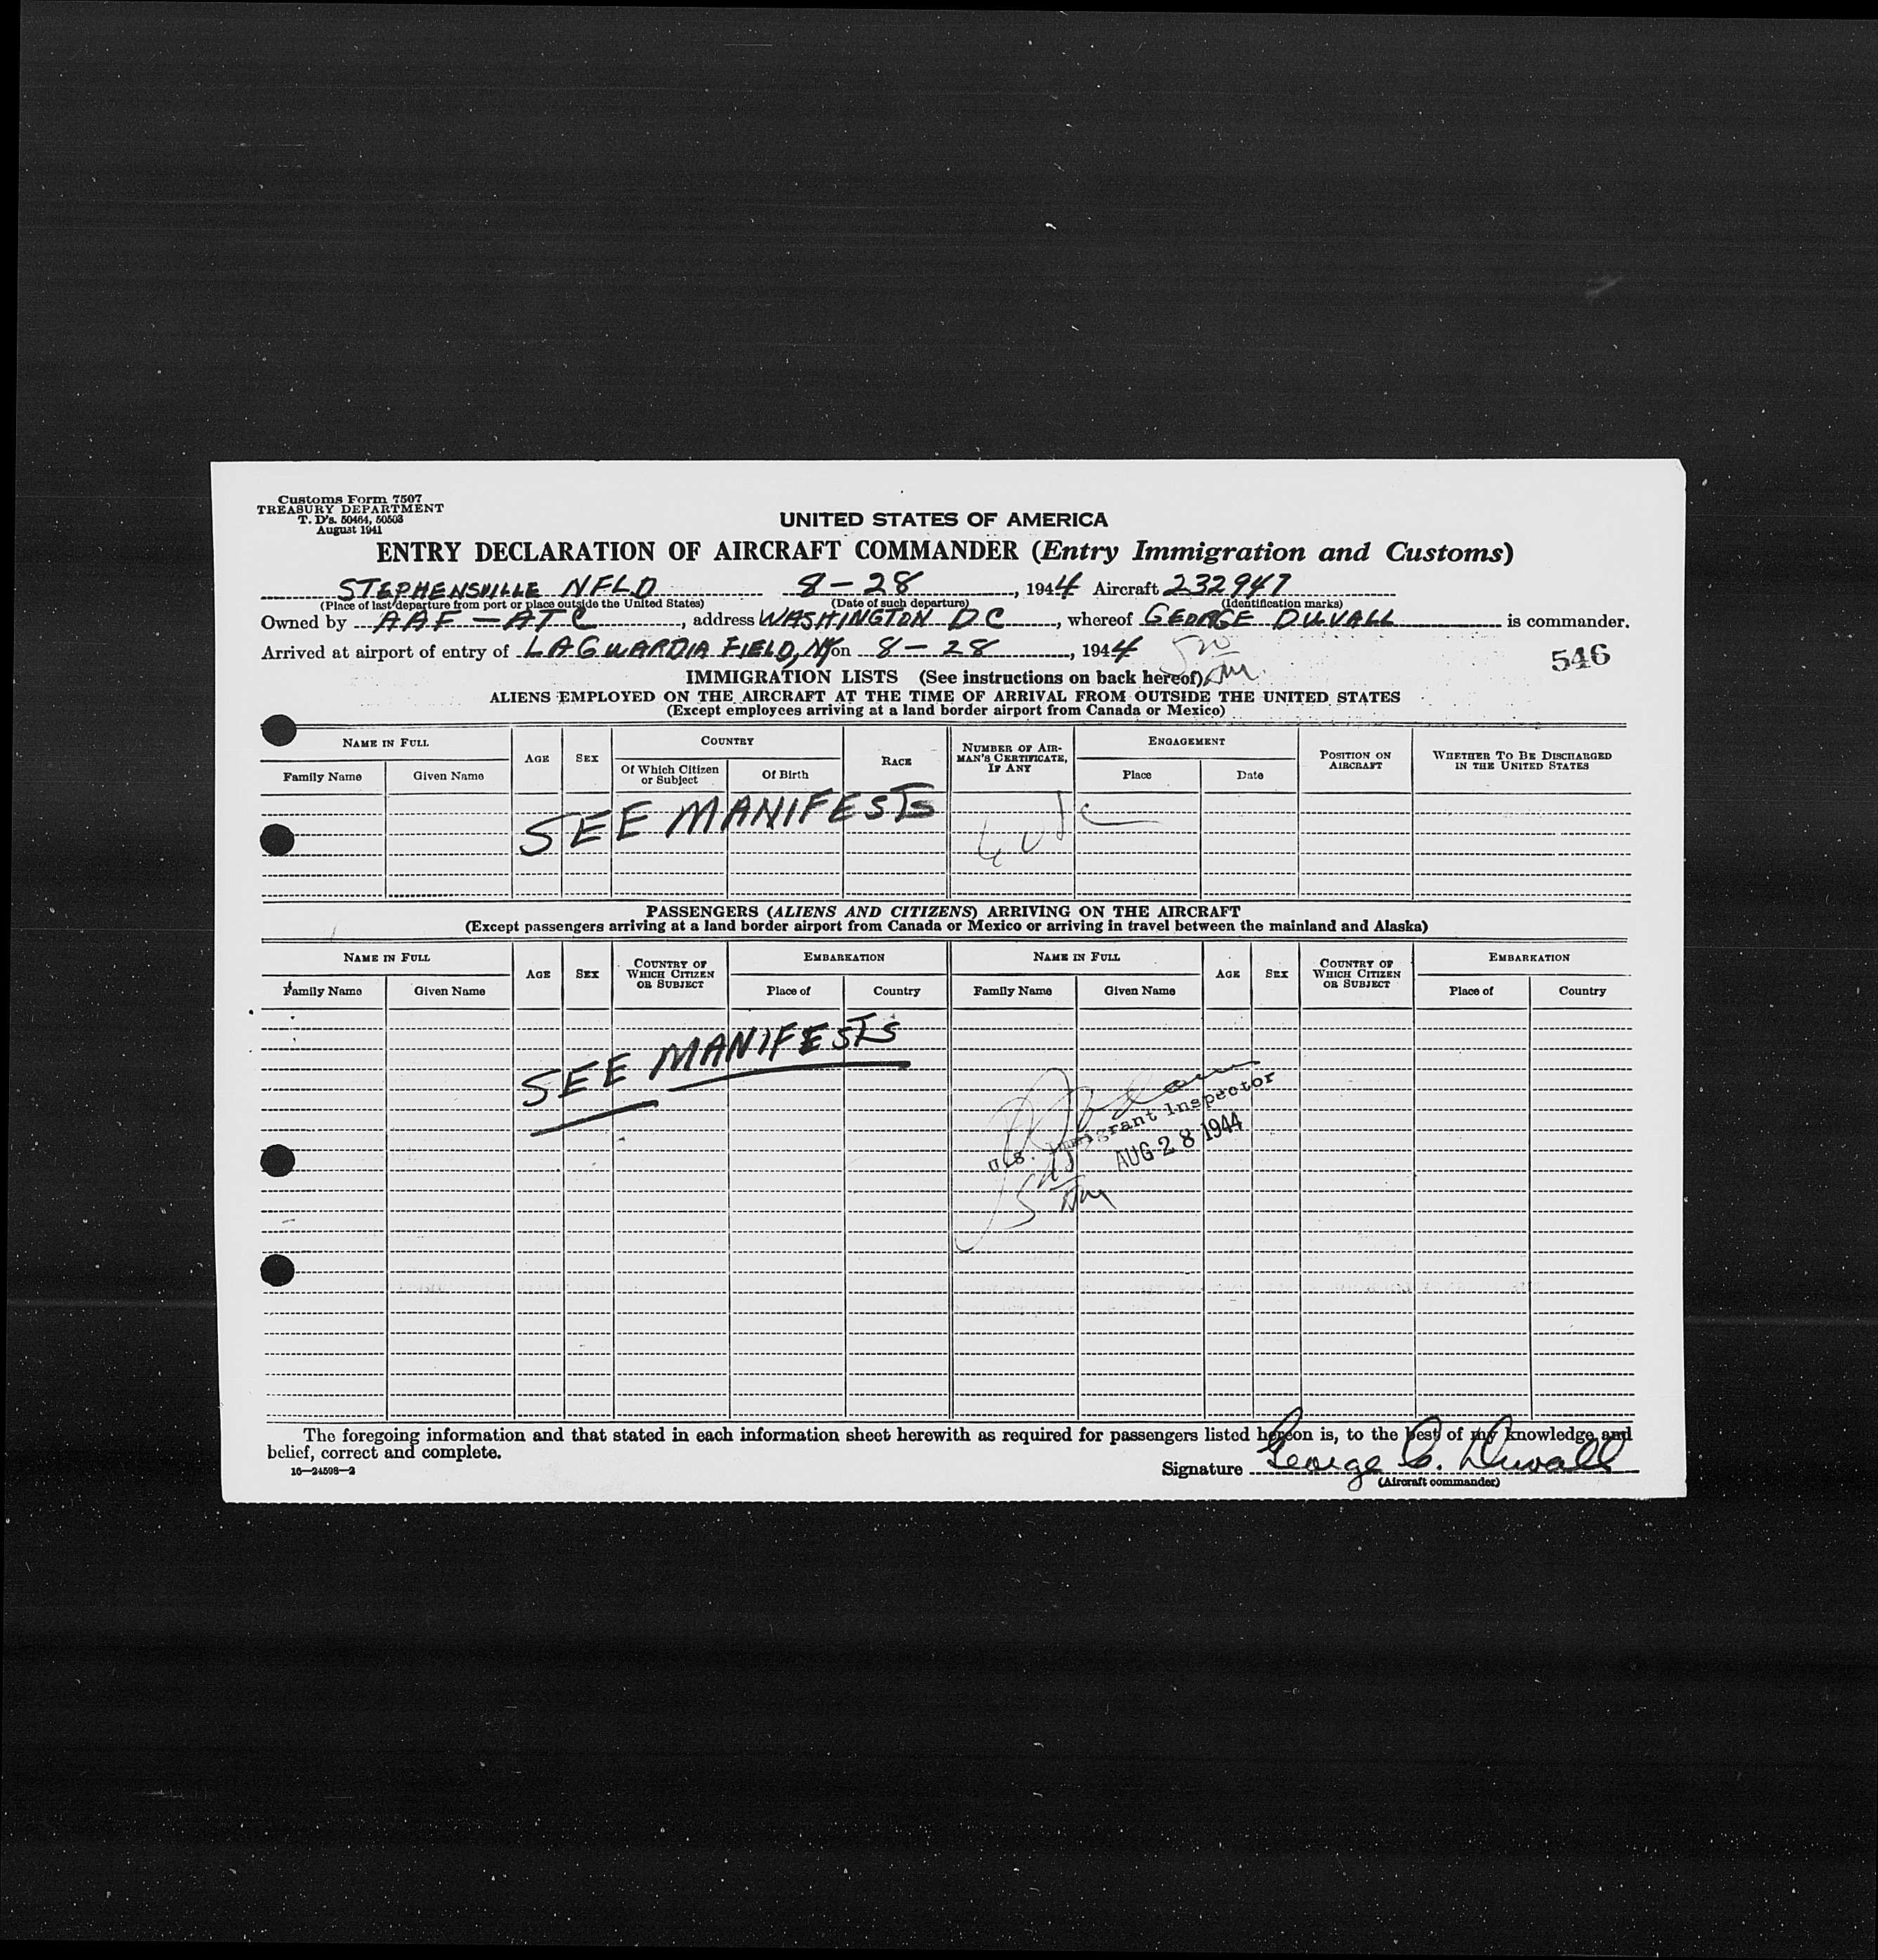 Customs Form 7507
TREASURY DEPARTMENT
T. D's. 50464, 50503
August 1941
UNITED STATES OF AMERICA
ENTRY DECLARATION OF AIRCRAFT COMMANDER (Entry Immigration and Customs)
STEPHENSVILLE NFLD 8-28, 1944 Aircraft 232947
(Place of last departure from port or place outside the United States) (Date of such departure) (Identification marks)
Owned by AAF-ATC, address WASHINGTON DC, whereof GEORGE DUVALL is commander.
Arrived at airport of entry of LAGUARDIA FIELD, NY on 8-28, 1944
546
IMMIGRATION LISTS (See instructions on back hereof)
ALIENS EMPLOYED ON THE AIRCRAFT AT THE TIME OF ARRIVAL FROM OUTSIDE THE UNITED STATES
(Except employees arriving at a land border airport from Canada or Mexico)
NAME IN FULL AGE SEX COUNTRY RACE NUMBER OF AIRMAN'S CERTIFICATE, IF ANY ENGAGEMENT POSITION ON AIRCRAFT WHETHER TO BE DISCHARGED IN THE UNITED STATES
Family Name Given Name Of Which Citizen or Subject Of Birth Place Date
SEE MANIFESTS
PASSENGERS (ALIENS AND CITIZENS) ARRIVING ON THE AIRCRAFT
(Except passengers arriving at a land border airport from Canada or Mexico or arriving in travel between the mainland and Alaska)
NAME IN FULL AGE SEX COUNTRY OF WHICH CITIZEN OR SUBJECT EMBARKATION NAME IN FULL AGE SEX COUNTRY OF WHICH CITIZEN OR SUBJECT EMBARKATION
Family Name Given Name Place of Country Family Name Given Name Place of Country
SEE MANIFESTS
U.S. Immigrant Inspector
AUG 28 1944
The foregoing information and that stated in each information sheet herewith as required for passengers listed hereon is, to the best of my knowledge and
belief, correct and complete.
16—24598-2
Signature George C. Duvall
(Aircraft commander)